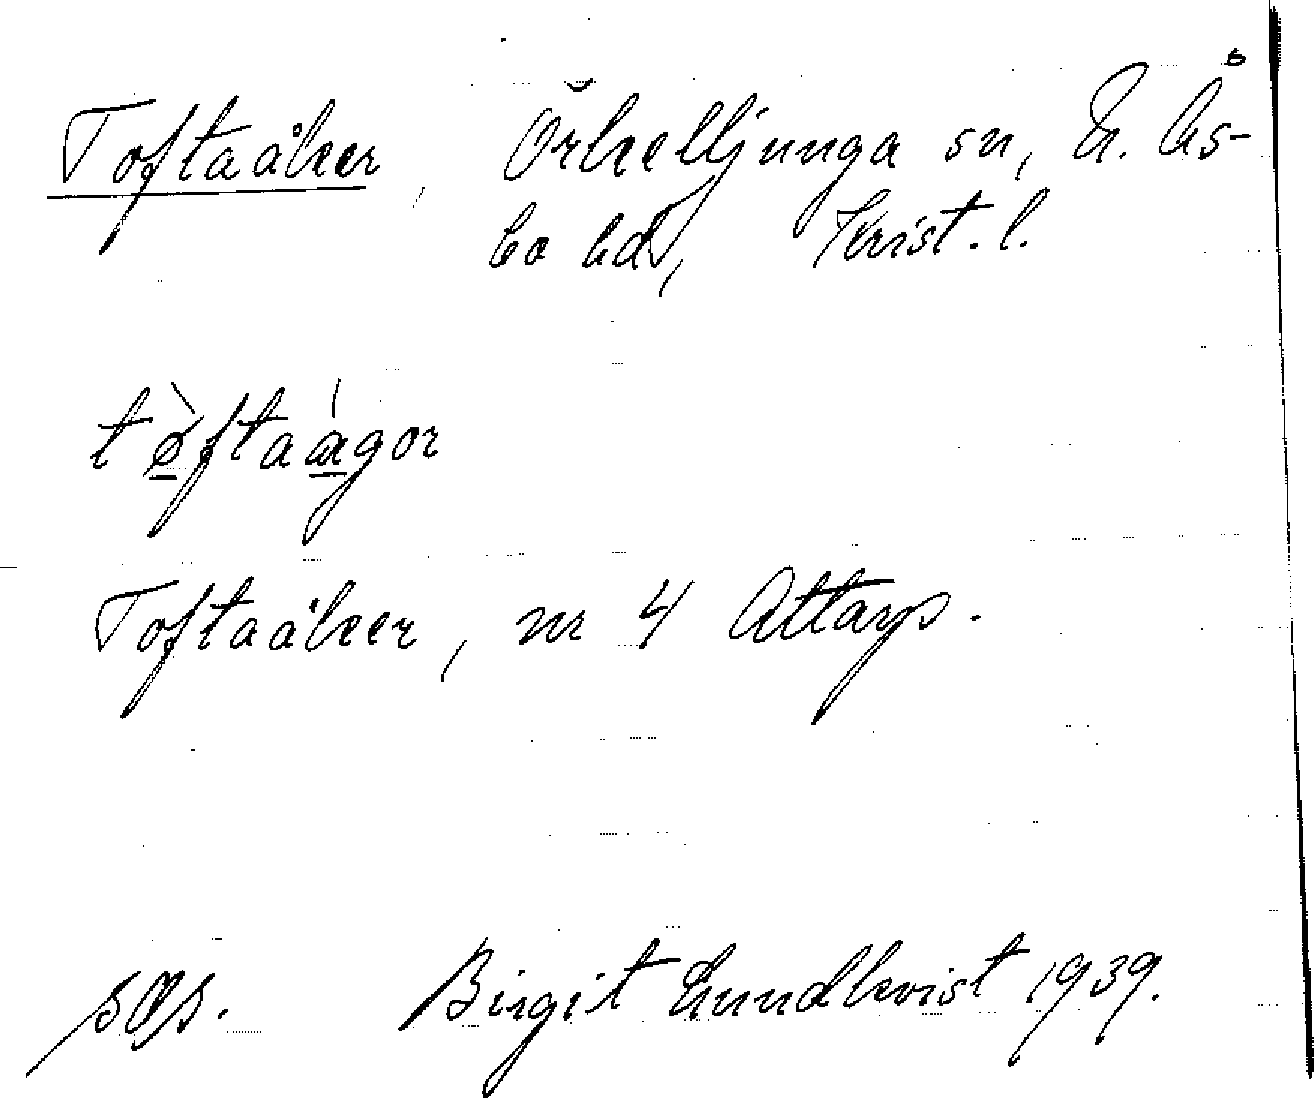 Toftaåker, Örkelljunga sn, N. Ås-
bo hd, Krist. l.
tø̀ftaágor
Toftaåker, nr 4 Attarp.
Birgit Lundkvist 1939.